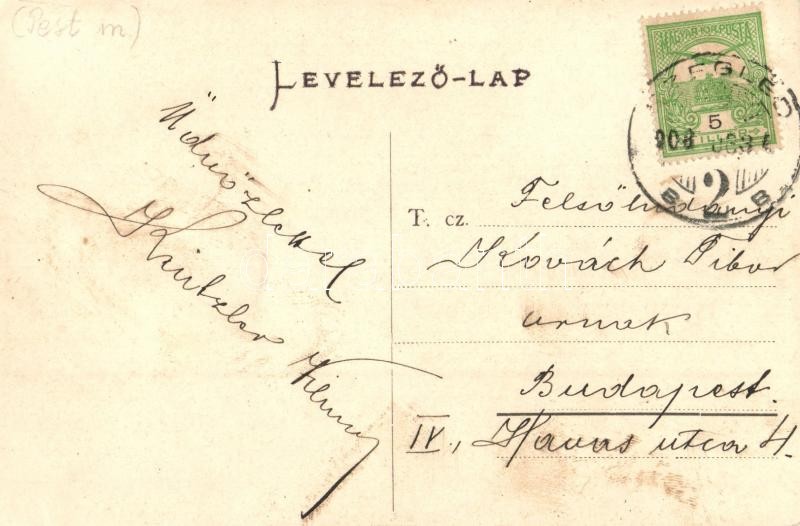 (Pest m.)
LEVELEZŐ-LAP
MAGYAR KIR. POSTA
5
CZEGLÉD
908
2
Üdvözlettel
Vilmos
T. cz. Felsőludányi
Kovách Tibor
urnak
Budapest.
IV., Havas utca 4.